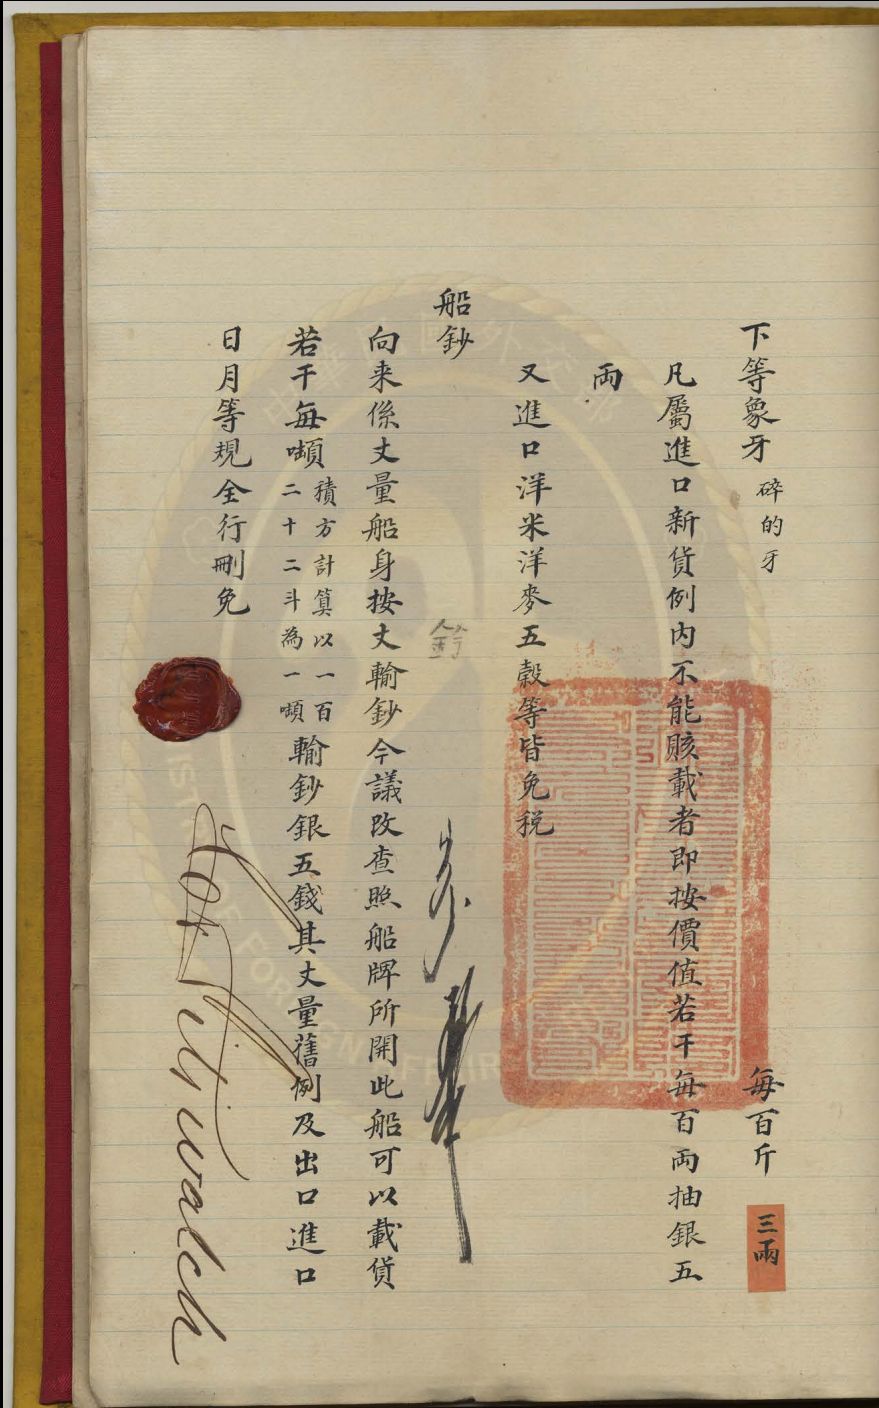 下等象牙 碎的牙 每百斤 三兩
凡屬進口新貨例内不能賅載者即按價值若干每百両抽銀五
両
又進口洋米洋麥五穀等皆免税
船鈔
向来係丈量船身按丈輸鈔今議改查照船牌所開此船可以載貨
若干每噸積方計算以一百二十二斗為一噸輸鈔銀五錢其丈量舊例及出口進口
日月等規全行刪免